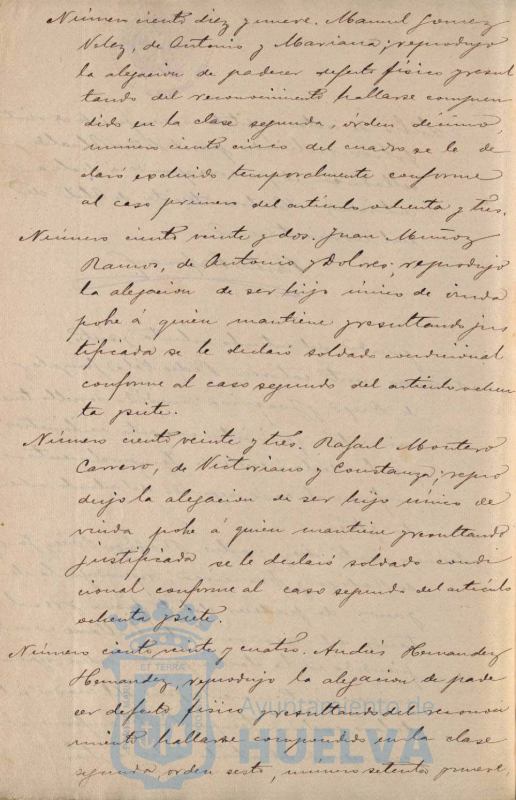 Número ciento diez y nueve. Manuel Gomez
Velez, de Antonio y Mariana; reprodujo
la alegacion de padecer defecto físico y resul
tando del reconocimiento hallarse compren
dido en la clase segunda, órden décimo,
número ciento cinco del cuadro se le de
claró excluido temporalmente conforme
al caso primero del artículo ochenta y tres.
Número ciento veinte y dos. Juan Muñoz
Ramos, de Antonio y Dolores; reprodujo
la alegacion de ser hijo único de viuda
pobre á quien mantiene y resultando jus
tificada se le declaró soldado condicional
conforme al caso segundo del artículo ochen
ta y siete.
Número ciento veinte y tres. Rafael Montero
Carrero, de Victoriano y Constanza; repro
dujo la alegacion de ser hijo único de
viuda pobre á quien mantiene y resultando
justificada se le declaró soldado condi
cional conforme al caso segundo del artículo
ochenta y siete.
Número ciento veinte y cuatro. Andrés Hernandez
Hernandez, reprodujo la alegacion de pade
cer defecto físico y resultando del reconoci
miento hallarse comprendido en la clase
segunda, orden sesto, número setenta y nueve,
ET TERRÆ
Ayuntamiento de
HUELVA